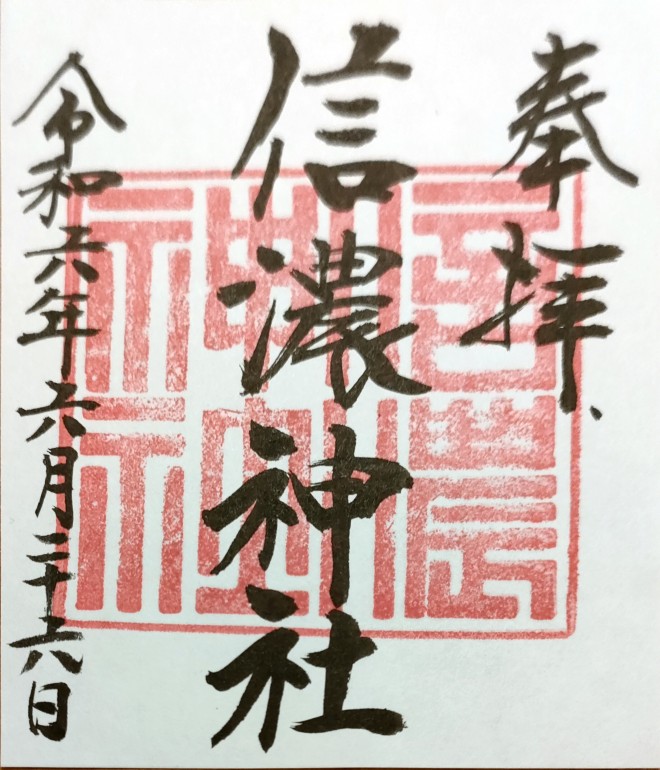 奉拝
信濃神社
信濃神社
令和六年六月二十六日